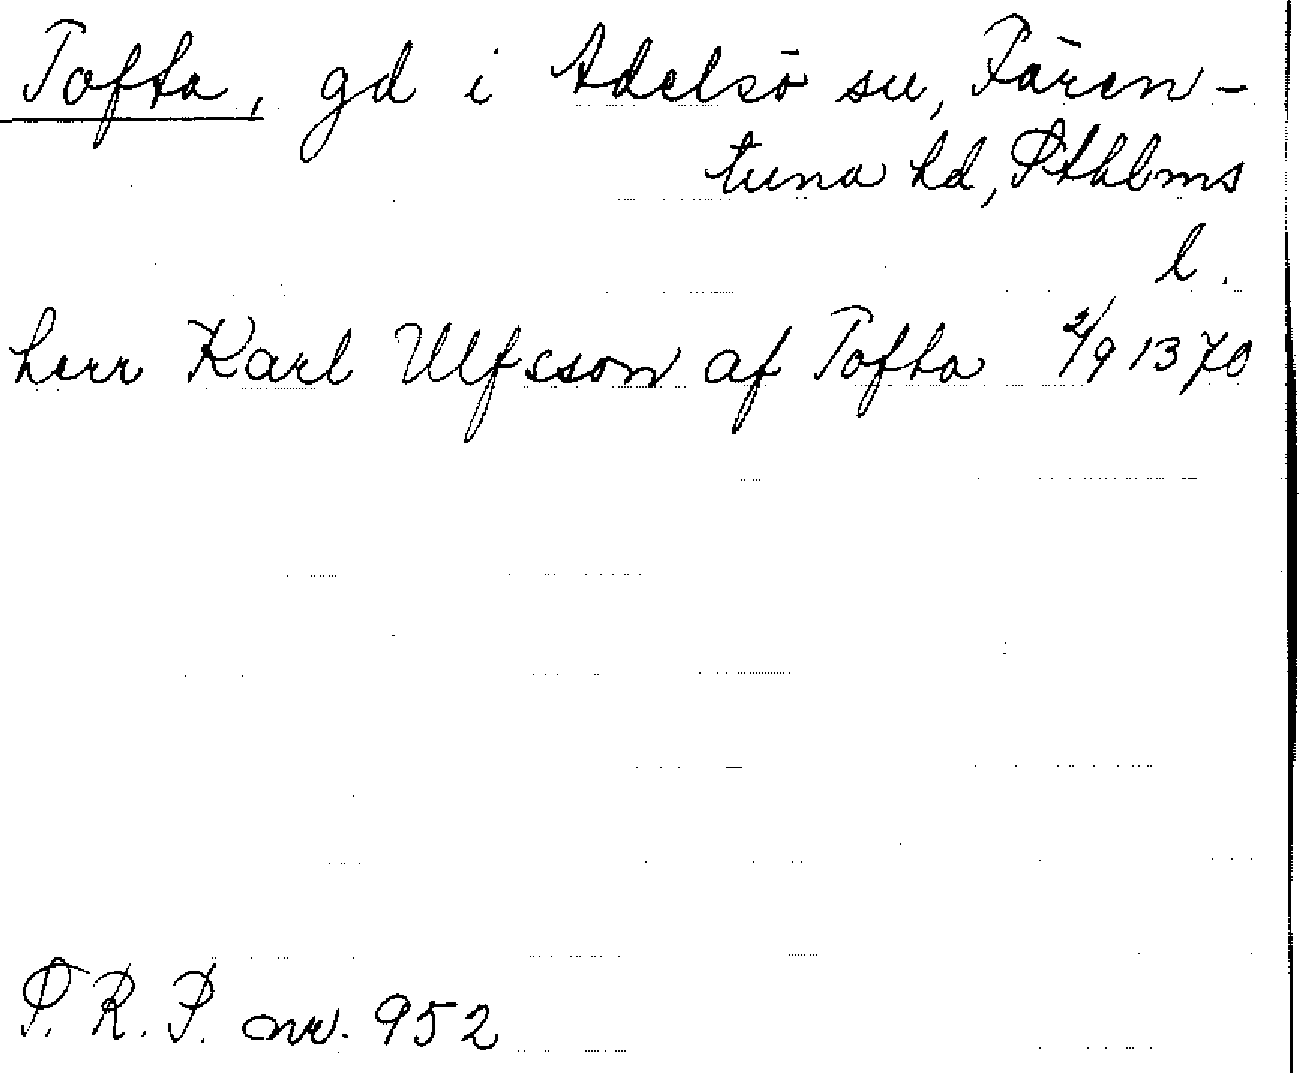 Tofta, gd i Adelsö sn, Fären-
tuna hd, Sthlms
l.
herr Karl Ulfsson af Tofta 2/9 1370
S. R. P. nr. 952